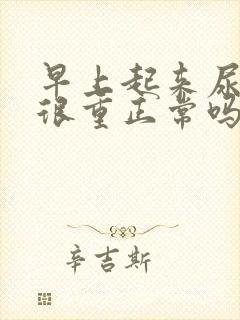 早上起来尿
很重正常吗
辛吉斯